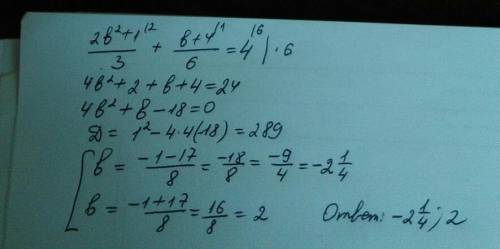 (2b²+1)/3 ^(2 + (b+4)/6 ^(1 = 4 ^(6 | · 6
4b²+2+b+4=24
4b²+b-18=0
D = 1²-4·4(-18) = 289
[ b = (-1-17)/8 = -18/8 = -9/4 = -2 1/4
b = (-1+17)/8 = 16/8 = 2 Ответ: -2 1/4; 2